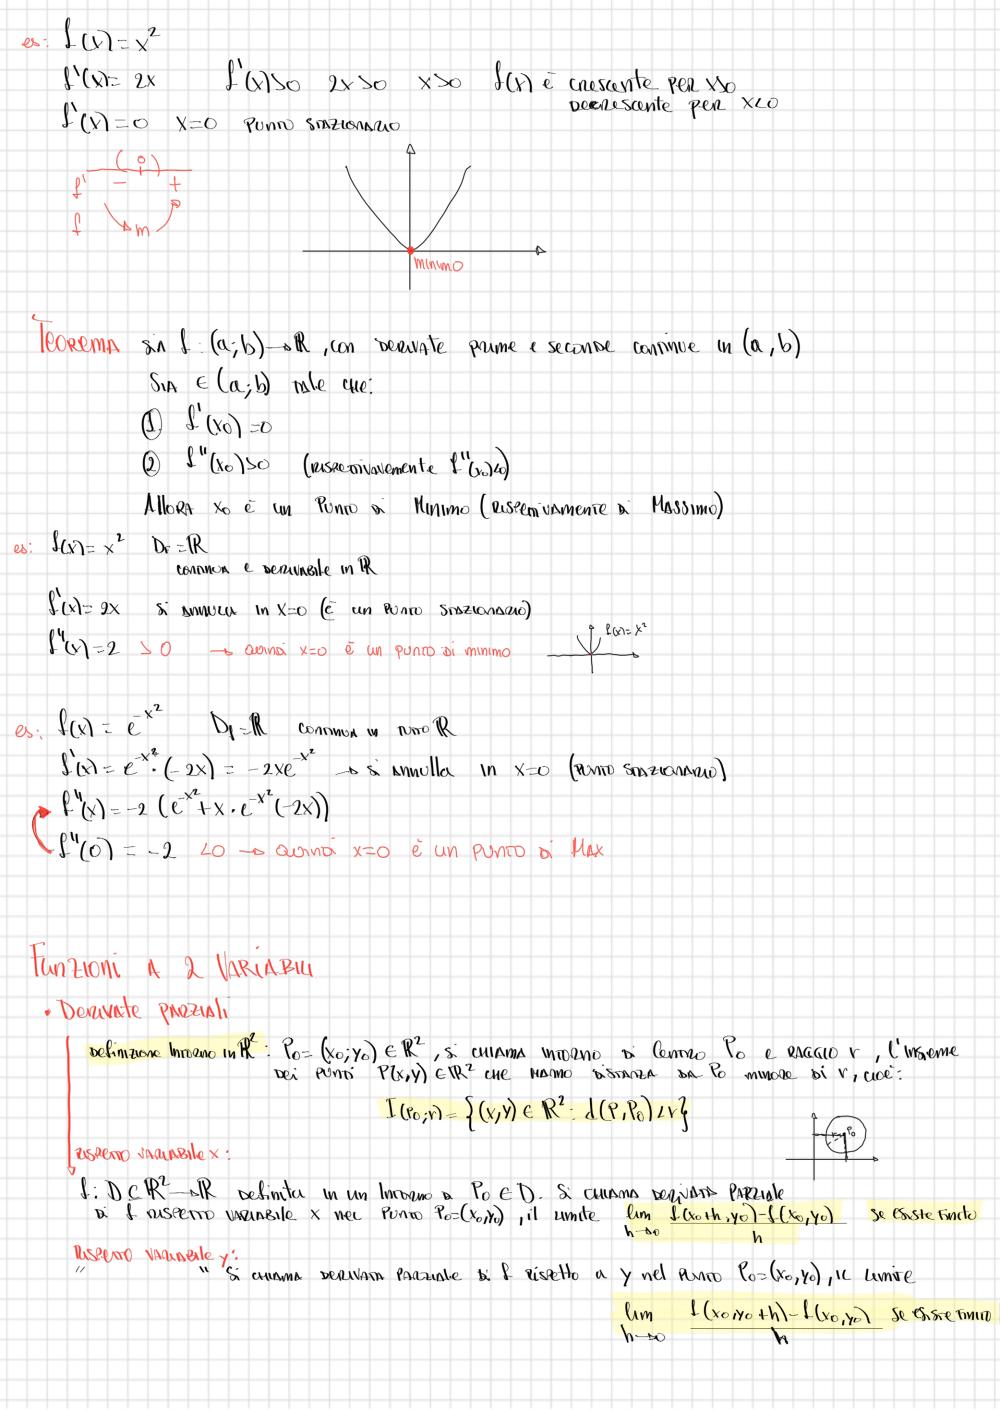 es: f(x) = x²
f'(x) = 2x f'(x)>0 2x>0 x>0 f(x) è crescente per x>0
decrescente per x<0
f'(x)=0 x=0 punto stazionario
( 0 )
f' - +
f m
minimo
Teorema sia f: (a;b)→ℝ, con derivate prime e seconde continue in (a,b)
Sia ∈ (a;b) tale che:
① f'(x₀)=0
② f''(x₀)>0 (rispettivamente f''(x₀)<0)
Allora x₀ è un punto di minimo (rispettivamente di massimo)
es: f(x)= x² Df=ℝ
continua e derivabile in ℝ
f'(x)= 2x si annulla in x=0 (è un punto stazionario)
f''(x)=2 >0 → quindi x=0 è un punto di minimo
f(x)=x²
es: f(x) = e^-x² Df=ℝ continua in tutto ℝ
f'(x) = e^-x² · (-2x) = -2xe^-x² → si annulla in x=0 (punto stazionario)
f''(x) = -2 (e^-x² + x · e^-x² (-2x))
f''(0) = -2 <0 → quindi x=0 è un punto di max
Funzioni a 2 variabili
• Derivate parziali
definizione intorno in ℝ²: P₀= (x₀;y₀) ∈ ℝ², si chiama intorno di centro P₀ e raggio r, l'insieme
dei punti P(x,y) ∈ ℝ² che hanno distanza da P₀ minore di r, cioè:
I(P₀;r) = {(x,y) ∈ ℝ² : d(P,P₀) < r}
r P₀
rispetto variabile x:
f: D⊆ℝ²→ℝ definita in un intorno di P₀ ∈ D. Si chiama derivata parziale
di f rispetto variabile x nel punto P₀=(x₀,y₀), il limite lim h→0 f(x₀+h, y₀)-f(x₀,y₀) / h se esiste finito
Rispetto variabile y:
" " si chiama derivata parziale di f rispetto a y nel punto P₀=(x₀,y₀), il limite
lim h→0 f(x₀,y₀+h)-f(x₀,y₀) / h se esiste finito